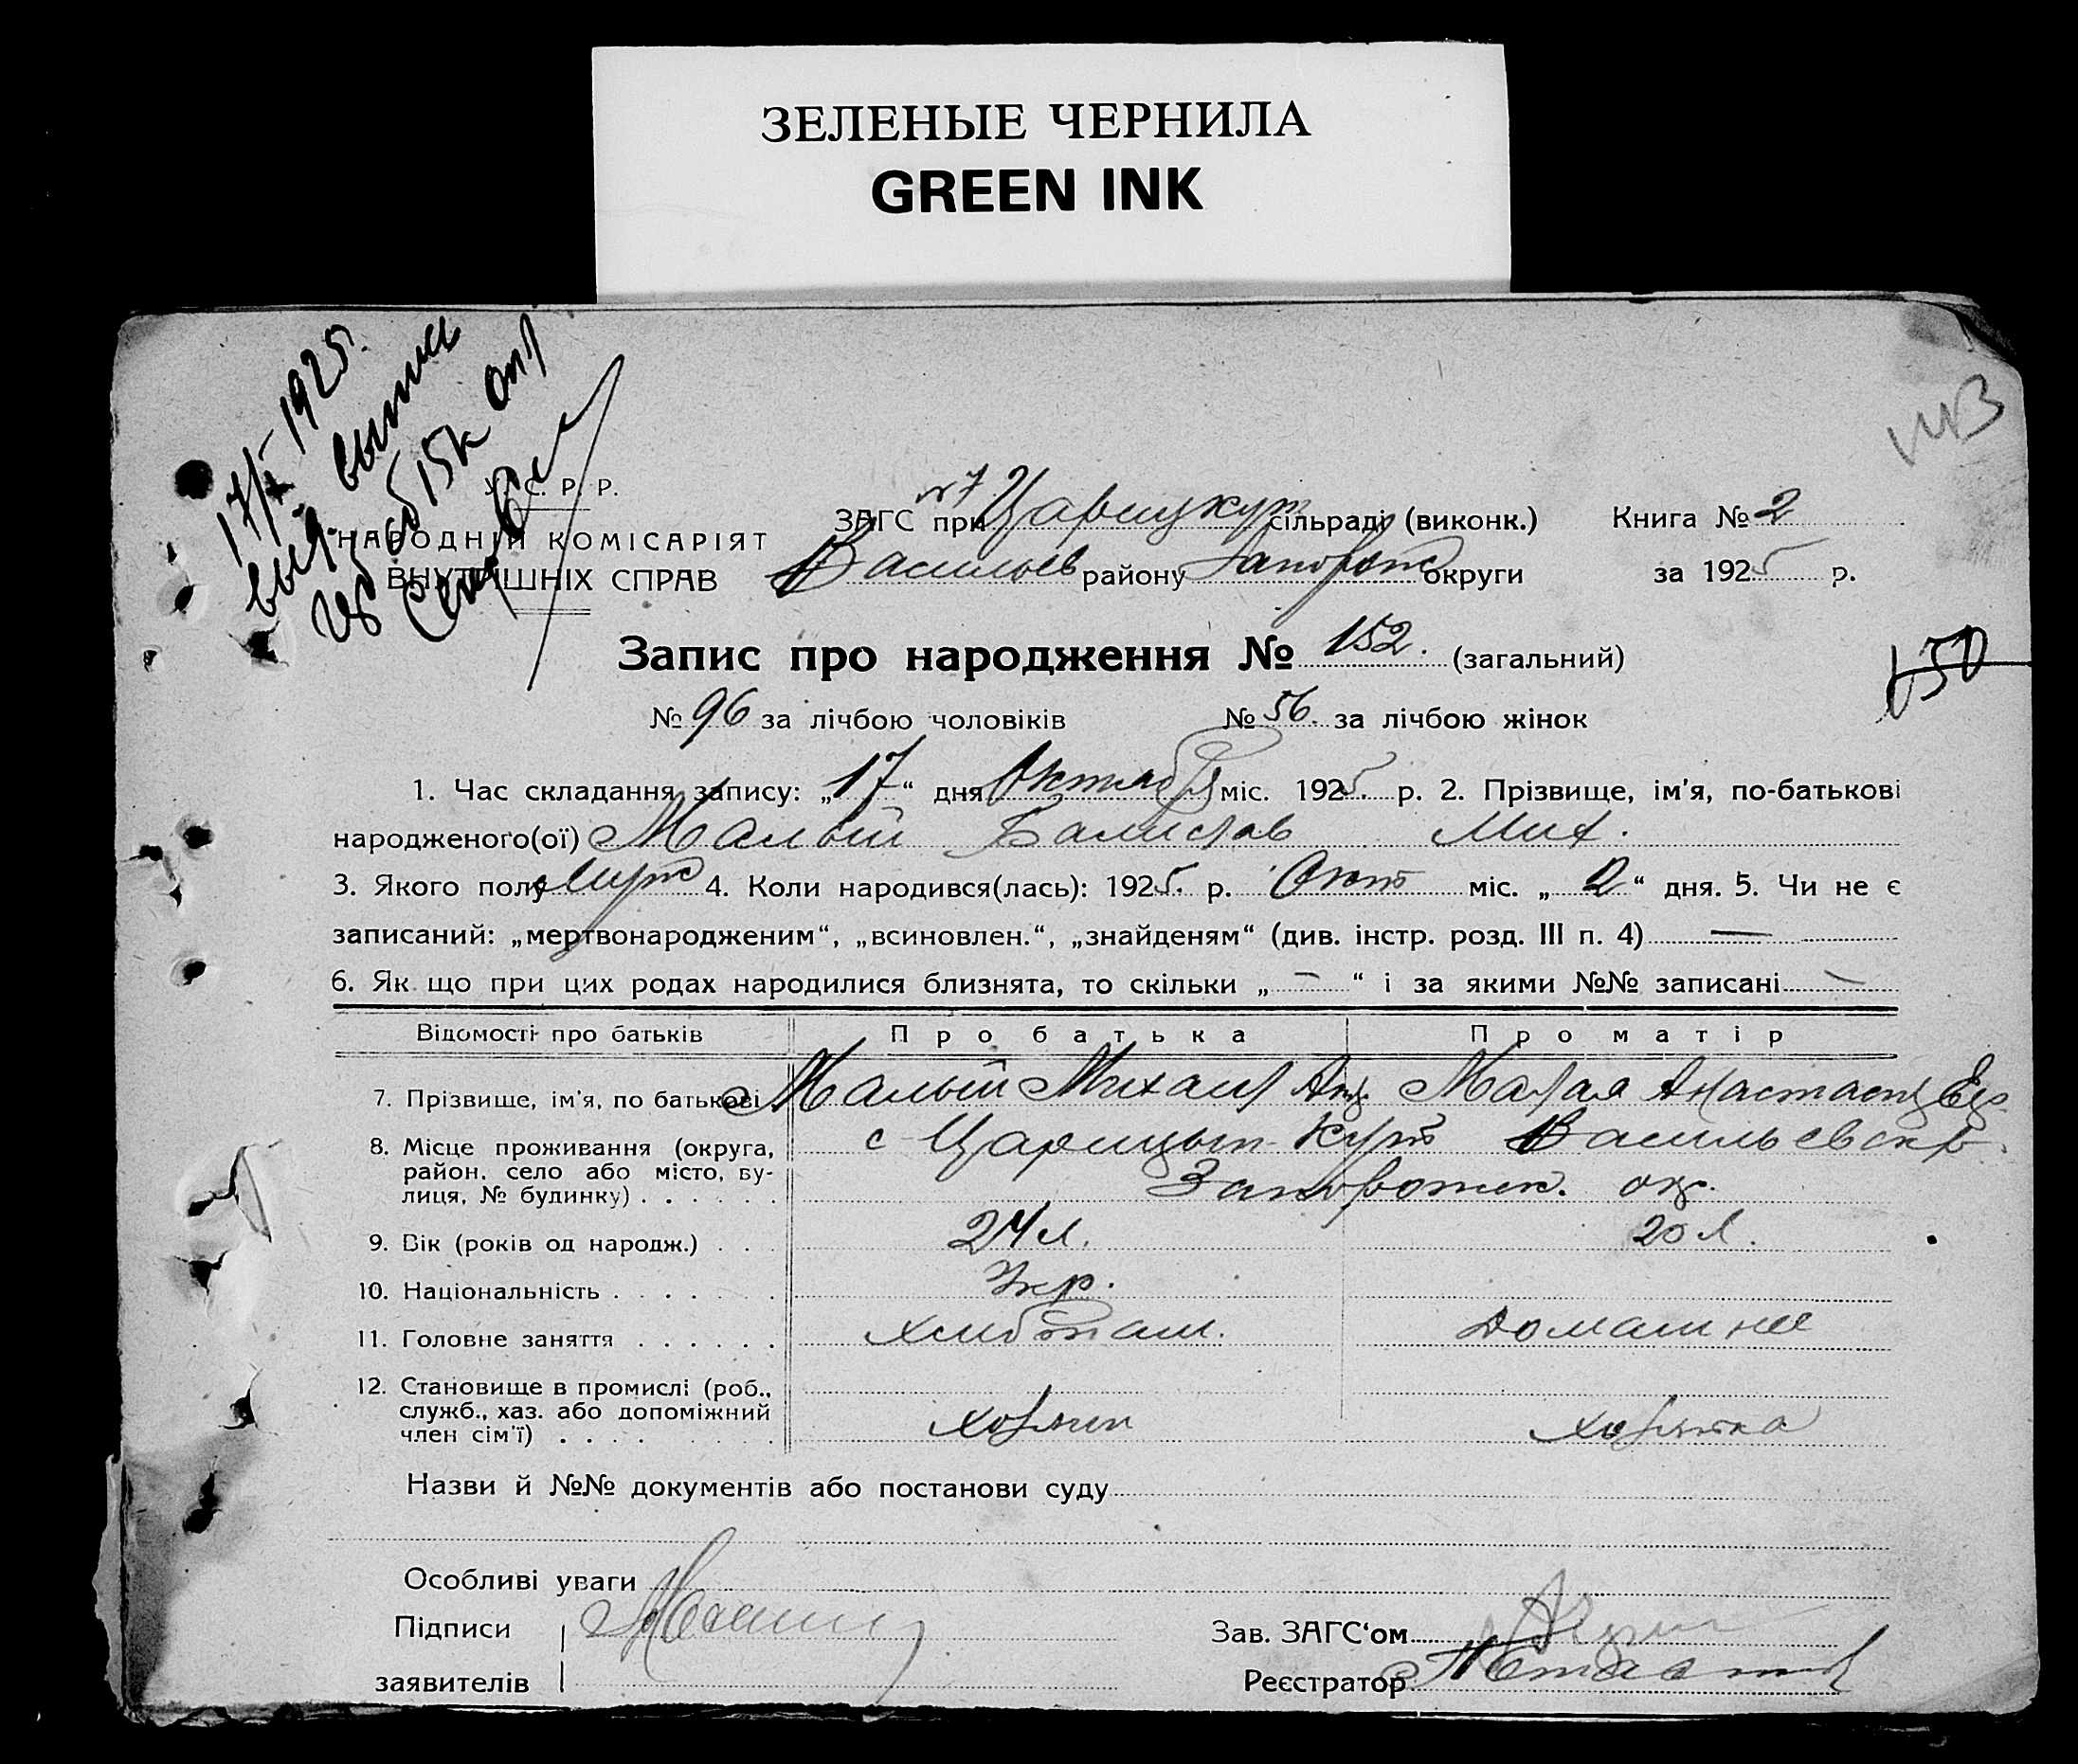 ЗЕЛЕНЫЕ ЧЕРНИЛА
GREEN INK
17/X 1925.
выд. выпис
об 15к
У. С. Р. Р.
НАРОДНІЙ КОМІСАРІЯТ
ВНУТРІШНІХ СПРАВ
ЗАГС при №7 Царицкут сільраді (виконк.) Книга № 2
Васильев району Запорож округи за 1925 р.
Запис про народження № 152. (загальний)
150
№ 96 за лічбою чоловіків № 56. за лічбою жінок
1. Час складання запису: „17“ дня Октября міс. 1925. р. 2. Прізвище, ім'я, по-батькові
народженого(ої) Малый Бамислав Мих.
3. Якого полу Мужс 4. Коли народився(лась): 1925. р. Окт міс. „2“ дня. 5. Чи не є
записаний: „мертвонародженим“, „всиновлен.“, „знайденям“ (див. інстр. розд. III п. 4) —
6. Як що при цих родах народилися близнята, то скільки „—“ і за якими №№ записані —
Відомості про батьків Про батька Про матір
7. Прізвище, ім'я, по батькові Малый Михаил Анд. Малая Анастас
8. Місце проживання (округа, с Царицын-Кут Васильевск р.
район, село або місто, ву-
лиця, № будинку) . . . . . . Запорожск. окр.
9. Вік (років од народж.) . . . 24 л. 20 л.
10. Національність . . . . . . . Укр.
11. Головне заняття . . . . . . хлибопаш. Домашнее
12. Становище в промислі (роб.,
служб., хаз. або допоміжний
член сім'ї) . . . . хозяин хозяйка
Назви й №№ документів або постанови суду
Особливі уваги
Підписи Зав. ЗАГС‘ом
заявителів Реєстратор